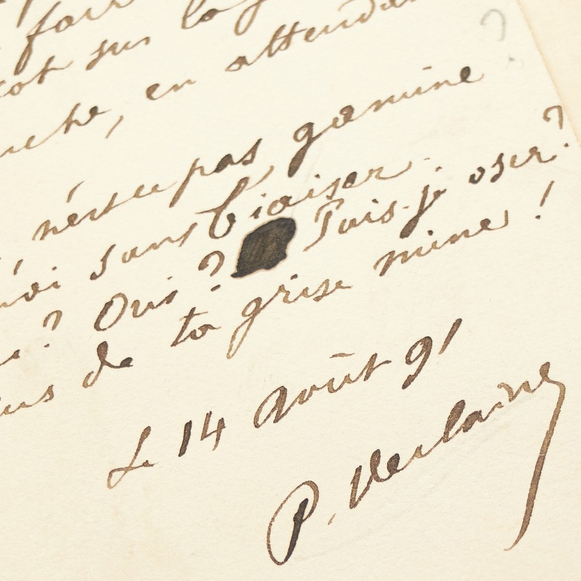 fair
sur la
uche, en attendan
n'est ce pas, gamine ?
moi sans biaiser.
? Oui ? Puis-je oser ?
us de ta grise mine !
Le 14 Août 91
P. Verlaine